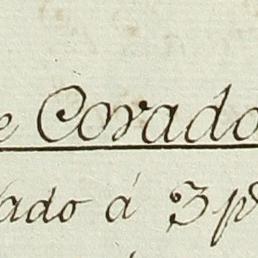 e Corado
ado á 3 p